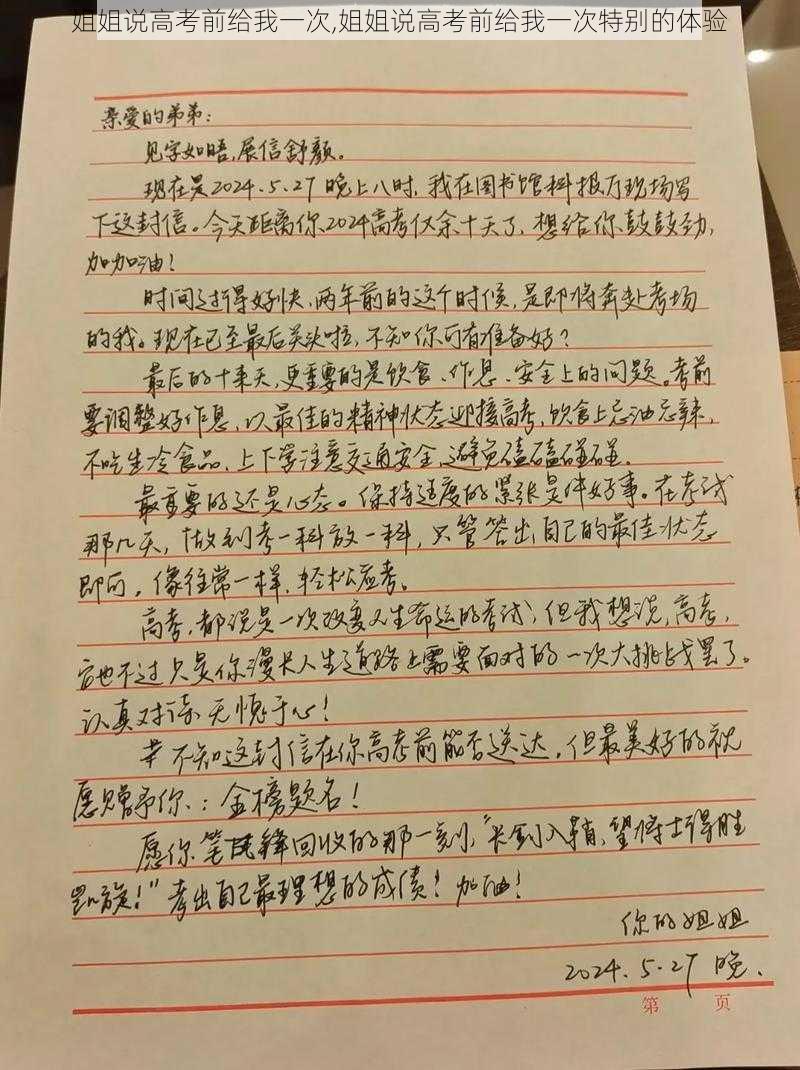 姐姐说高考前给我一次,姐姐说高考前给我一次特别的体验
亲爱的弟弟：
见字如晤,展信舒颜。
现在是2024.5.27晚上八时,我在图书馆科报厅现场写
下这封信。今天距离你2024高考仅余十天了,想给你鼓鼓劲,
加加油！
时间过得好快,两年前的这个时候,是即将奔赴考场
的我。现在已至最后关头啦,不知你可有准备好？
最后的十来天,更重要的是饮食、作息、安全上的问题。考前
要调整好作息,以最佳的精神状态迎接高考,饮食上忌油忌辣,
不吃生冷食品,上下学注意交通安全,避免磕磕碰碰。
最重要的还是心态。保持适度的紧张是件好事。在考试
那几天,做到考一科放一科,只管答出自己的最佳状态
即可,像往常一样,轻松应考。
高考,都说是一次改变人生命运的考试,但我想说,高考,
它也不过只是你漫长人生道路上需要面对的一次大挑战罢了。
认真对待,无愧于心！
不知这封信在你高考前能否送达,但最美好的祝
愿赠予你：金榜题名！
愿你笔锋回收的那一刻,“长剑入鞘,望将士得胜
凯旋！”考出自己最理想的成绩！加油！
你的姐姐
2024.5.27晚.
第 页